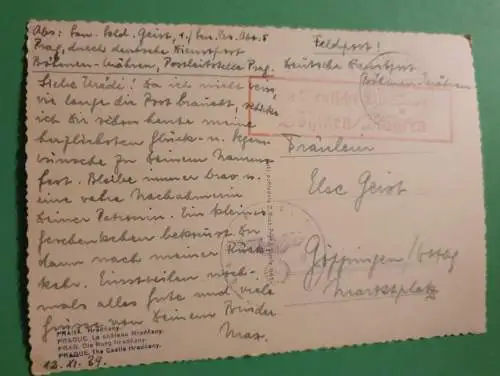 Abs: San. Sold. Geist, 1./San. Ers. Abt. 5
Prag, durch deutsche Dienstpost
Böhmen-Mähren, Postleitstelle Prag.
Liebe Mädi! Da ich nicht weis,
wie lange die Post braucht, schicke
ich Dir schon heute meine
herzlichsten Glück- u. Segens-
wünsche zu Deinem Namens-
fest. Bleibe immer brav u.
eine wahre Nachahmerin
Deiner Patronin. Ein kleines
Geschenkchen bekommst Du
dann nach meiner Rück-
kehr. Einstweilen noch-
mals alles Gute und viele
Grüsse von Deinem Bruder
Max.
PRAHA. Hradčany.
PRAGUE. Le château Hradčany.
PRAG. Die Burg Hradčany.
PRAGUE. The Castle Hradčany.
12.11.39.
Feldpost!
Deutsche Dienstpost
Böhmen-Mähren
Böhmen/Mähren
Fräulein
Else Geist
Göppingen/Wttbg
Marktplatz